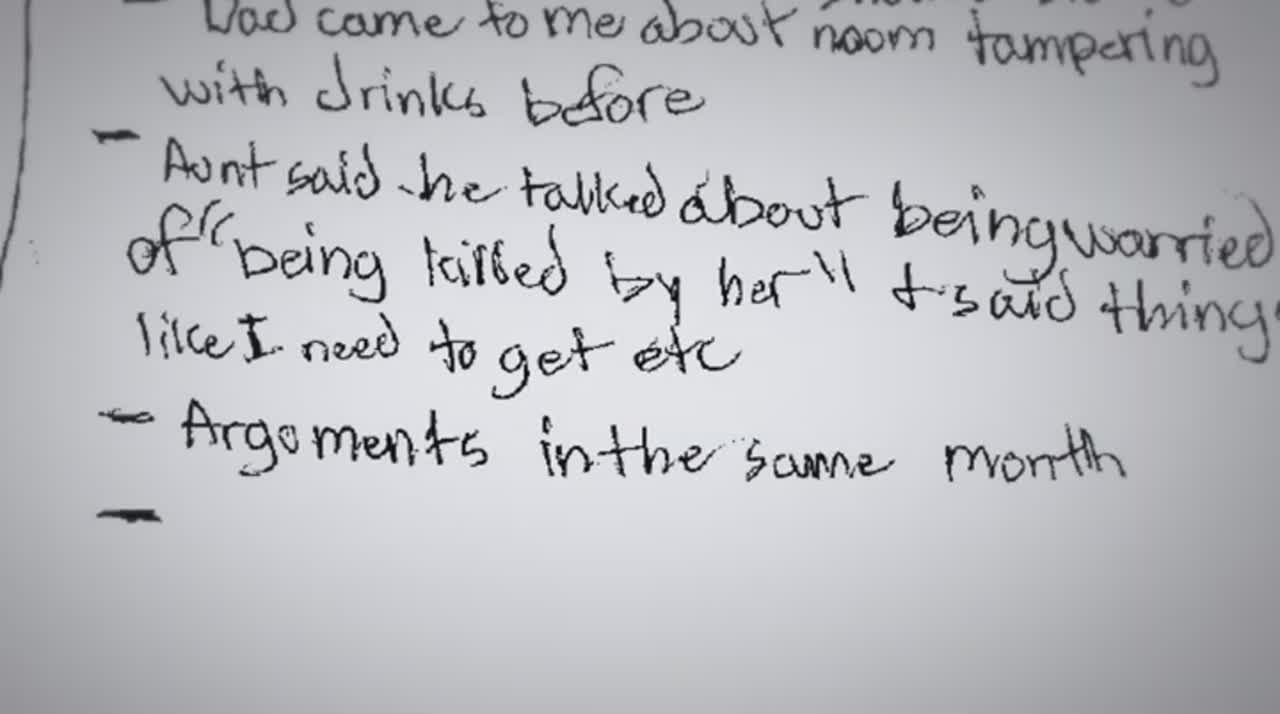 - Dad came to me about noom tampering
with drinks before
- Aunt said he talked about being worried
of "being killed by her" & said thing
like I need to get etc
- Argoments in the same month
-